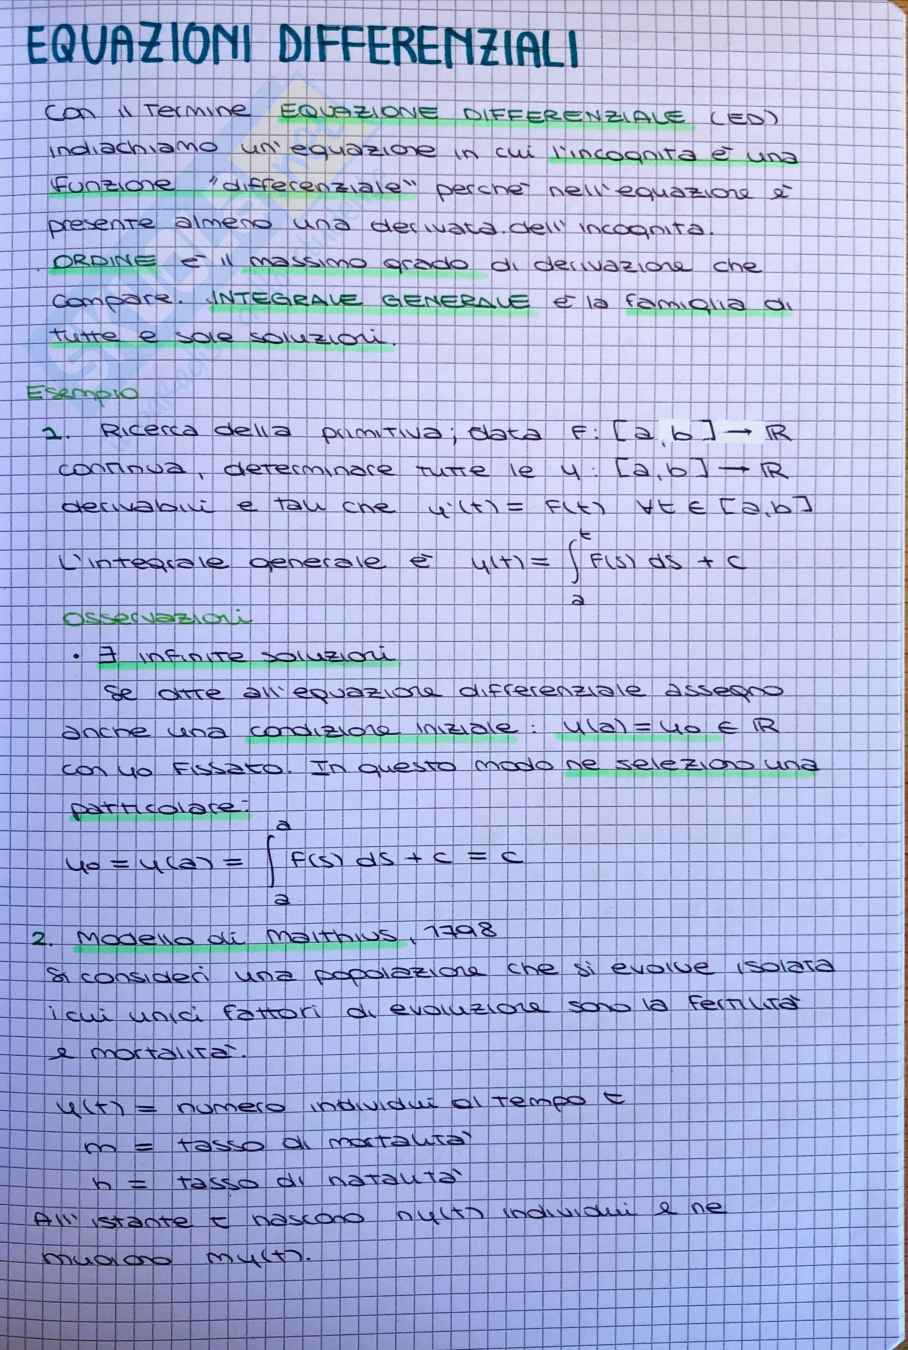 EQUAZIONI DIFFERENZIALI
Con il termine EQUAZIONE DIFFERENZIALE (ED)
indiachiamo un'equazione in cui l'incognita è una
funzione "differenziale" perchè nell'equazione è
presente almeno una derivata dell'incognita.
ORDINE è il massimo grado di derivazione che
compare. INTEGRALE GENERALE è la famiglia di
tutte e sole soluzioni.
Esempio
1. Ricerca della primitiva; data f: [a,b] → ℝ
continua, determinare tutte le y: [a,b] → ℝ
derivabili e tali che y'(t) = f(t) ∀t ∈ [a,b]
L'integrale generale è y(t) = ∫ₐᵗ f(s) ds + c
Osservazioni
• ∃ infinite soluzioni
Se oltre all'equazione differenziale assegno
anche una condizione iniziale: y(a) = y0 ∈ ℝ
con y0 fissato. In questo modo ne seleziono una
particolare:
y0 = y(a) = ∫ₐᵃ f(s) ds + c = c
2. Modello di Malthius, 1798
Si consideri una popolazione che si evolve isolata
i cui unici fattori di evoluzione sono la fertilità
e mortalità.
y(t) = numero individui al tempo t
m = tasso di mortalità
n = tasso di natalità
All'istante t nascono ny(t) individui e ne
muoiono my(t).